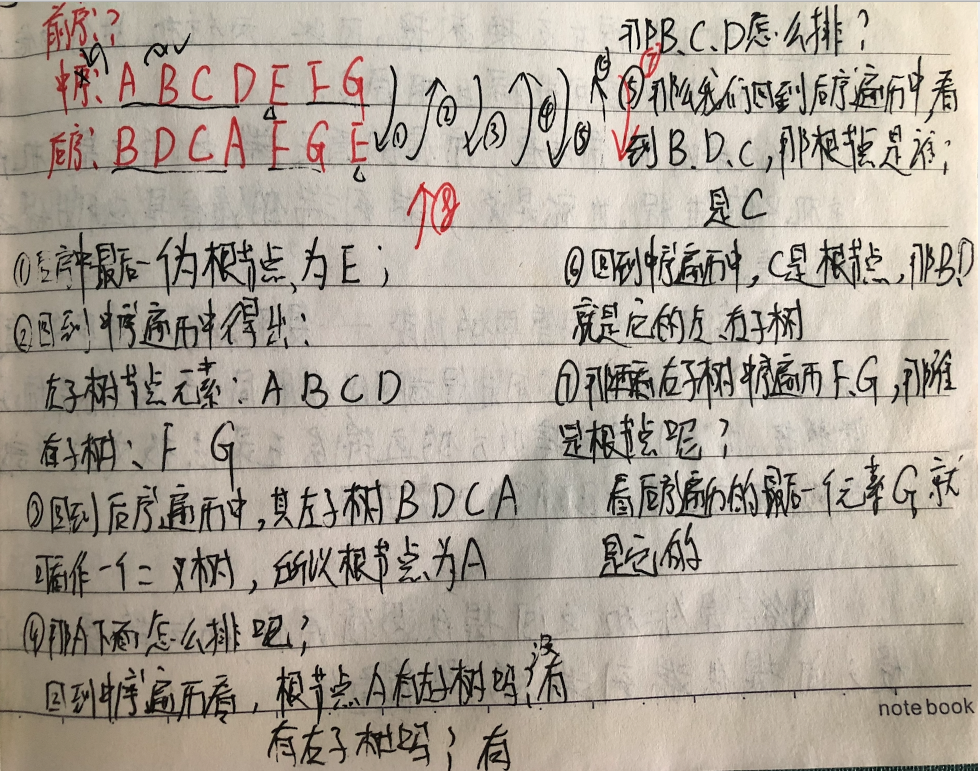 前序:?
中序: A B C D E F G
后序: B D C A F G E
① ② ③ ④ ⑤ ⑥ ⑦
⑧
①后序中最后一位为根节点,为E;
②回到中序遍历中得出:
左子树节点元素:A B C D
右子树:F G
③回到后序遍历中,其左子树BDCA
可看作一个二叉树,所以根节点为A
④那A下面怎么排呢?
回到中序遍历看,根节点A有左子树吗?没有
有右子树吗?有
那B.C.D怎么排?
⑤那么我们回到后序遍历中,看
到B.D.C,那根节点是谁?
是C
⑥回到中序遍历中,C是根节点,那B.D
就是它的左右子树
⑦那再看右子树中序遍历F.G,那谁
是根节点呢?
看后序遍历的最后一个元素G,就
是它的
note book